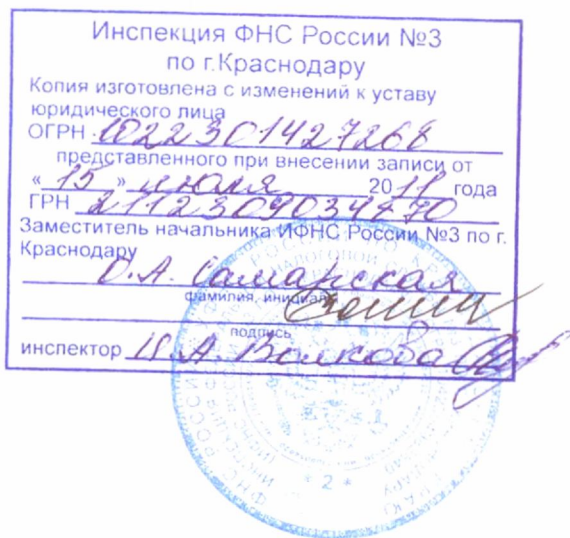 Инспекция ФНС России №3
по г.Краснодару
Копия изготовлена с изменений к уставу
юридического лица
ОГРН 1022301427268
представленного при внесении записи от
« 15 » июля 2011 года
ГРН 2112309034770
Заместитель начальника ИФНС России №3 по г.
Краснодару
О.А. Самарская
фамилия, инициалы
подпись
инспектор И.А. Волкова
* 2 *